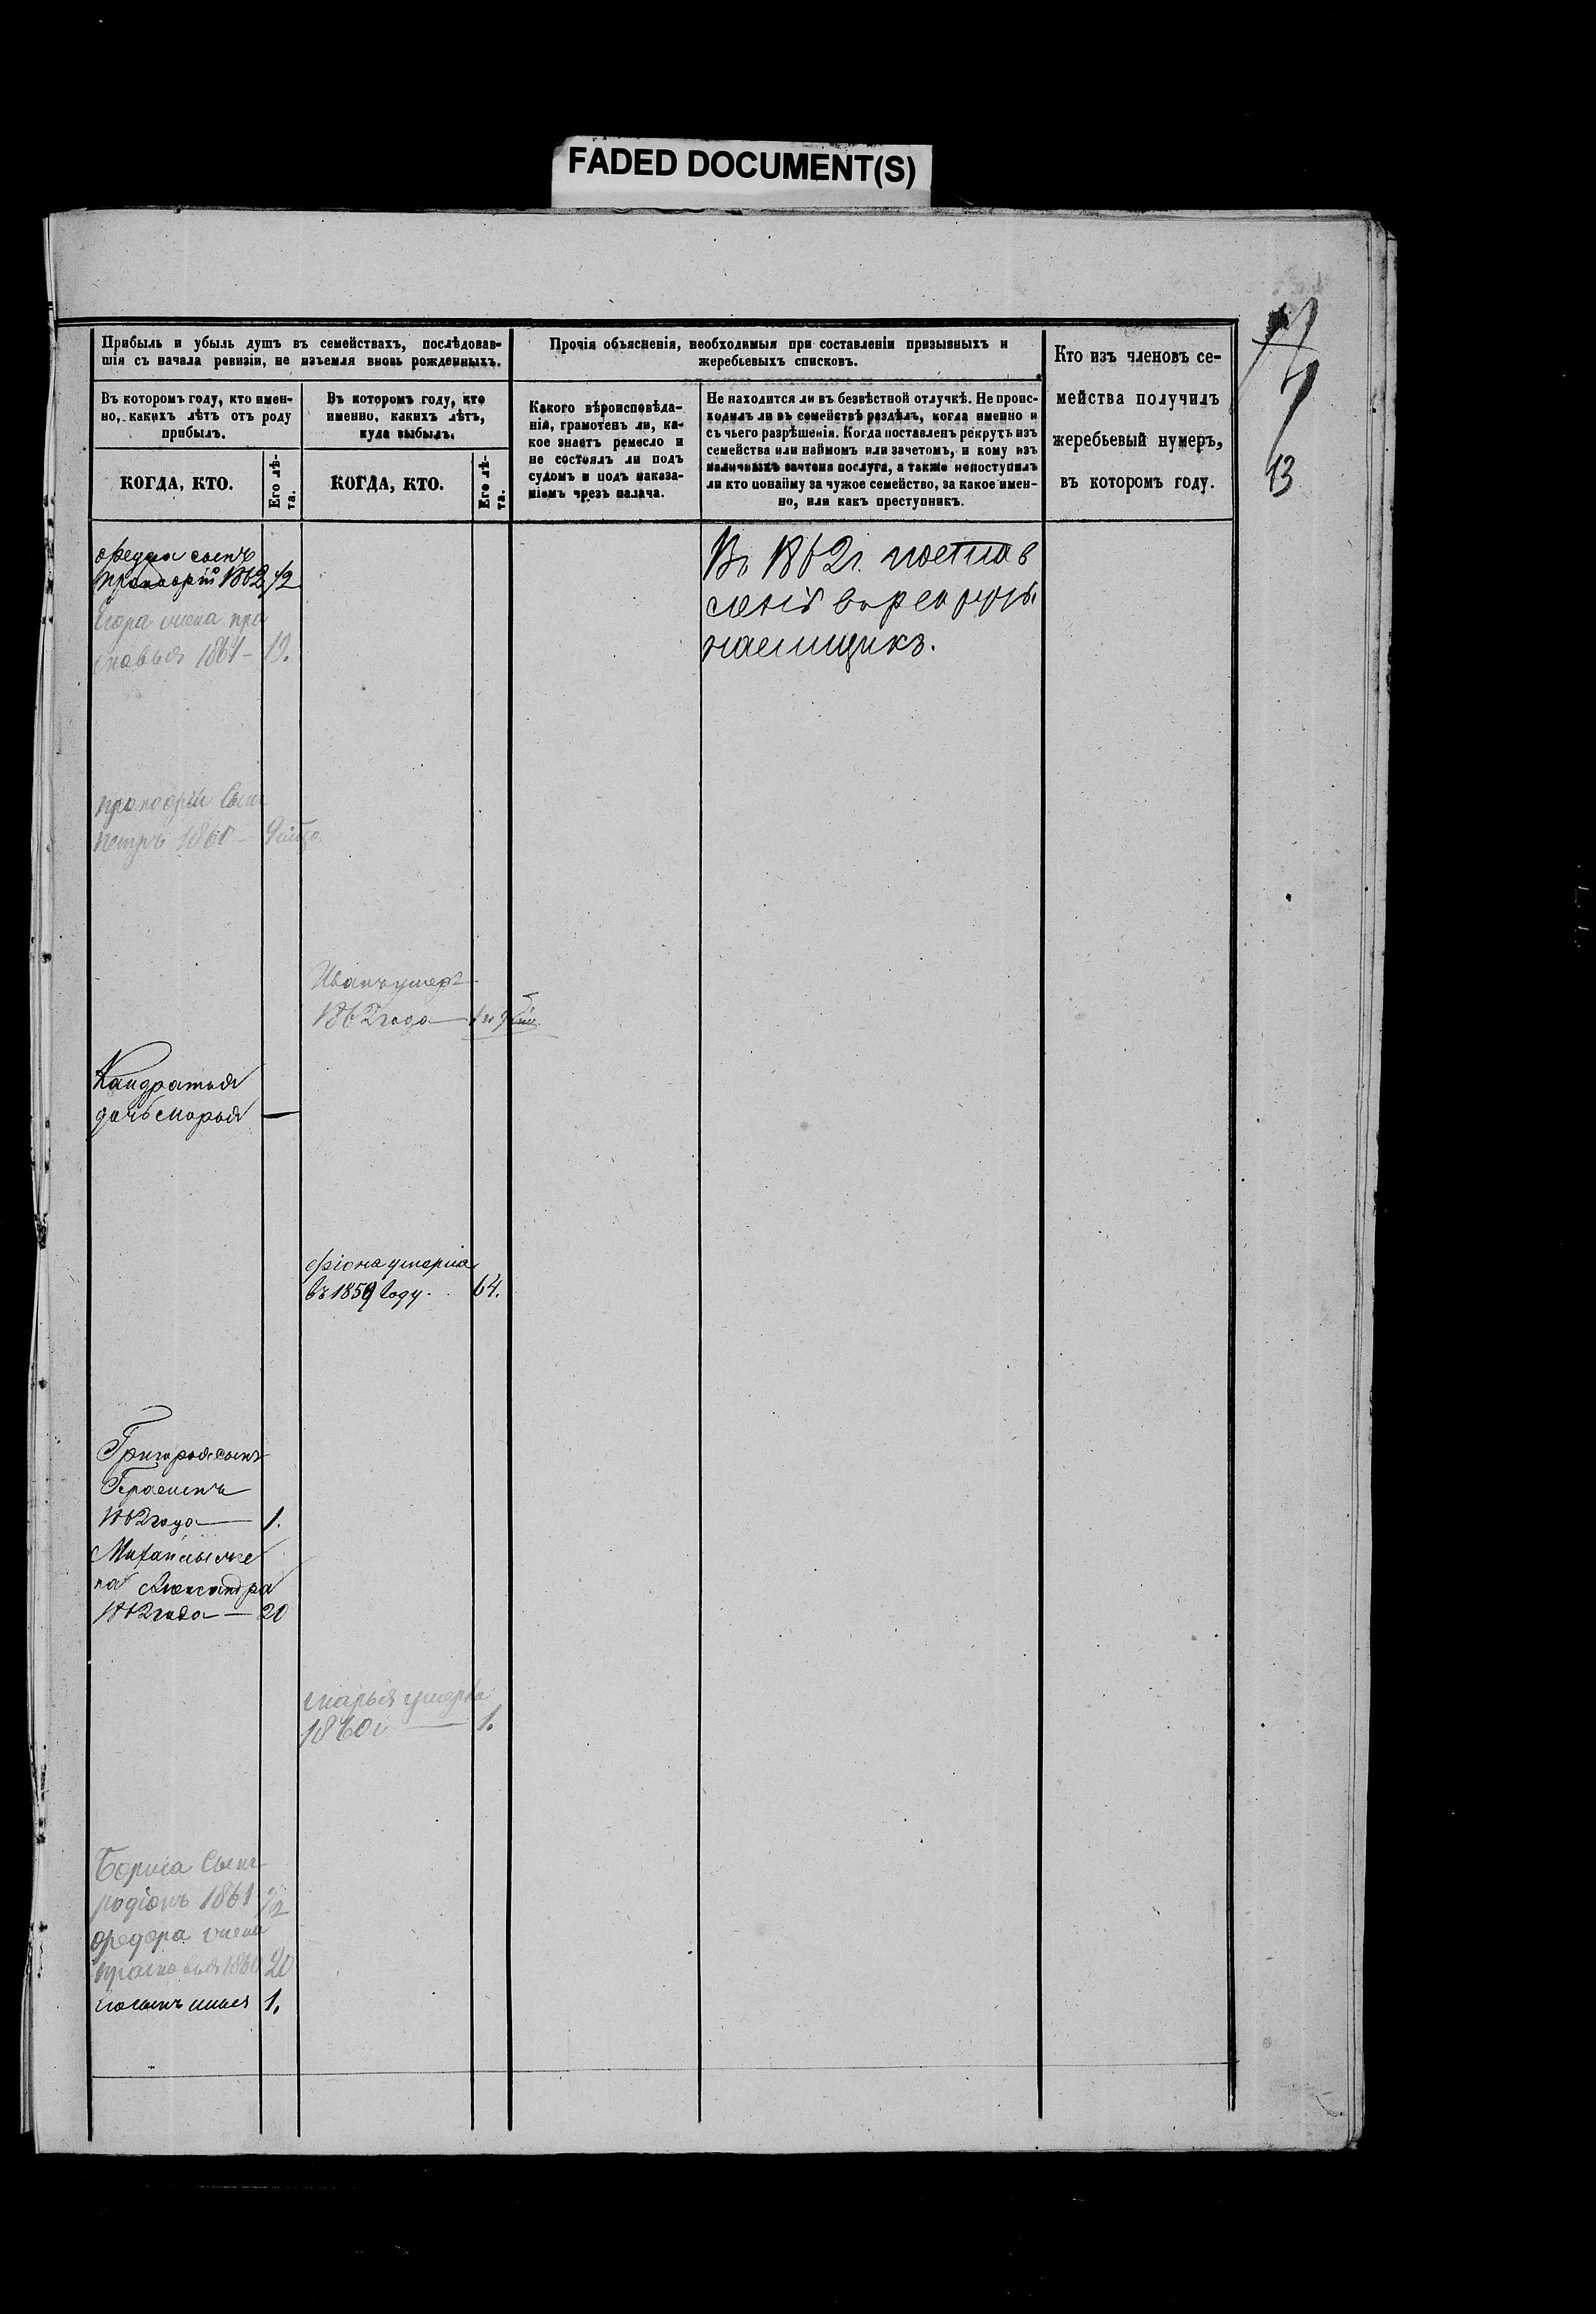 FADED DOCUMENT(S)
Прибыль и убыль душъ въ семействахъ, послѣдовав-
шія съ начала ревизіи, не изъемля вновь рожденныхъ.
Въ которомъ году, кто имен-
но, какихъ лѣтъ отъ роду
прибылъ.
КОГДА, КТО.
Его лѣ-
та.
Въ которомъ году, кто
именно, какихъ лѣтъ,
куда выбылъ.
КОГДА, КТО.
Его лѣ-
та.
Прочія объясненія, необходимыя при составленіи призывныхъ и
жеребьевыхъ списковъ.
Какого вѣроисповѣда-
нія, грамотенъ ли, ка-
кое знаетъ ремесло и
не состоялъ ли подъ
судомъ и подъ наказа-
ніемъ чрезъ палача.
Не находится ли въ безвѣстной отлучкѣ. Не проис-
ходилъ ли въ семействѣ раздѣлъ, когда именно и
съ чьего разрѣшенія. Когда поставленъ рекрутъ изъ
семейства или наймомъ или зачетомъ, и кому изъ
наличныхъ зачтена послуга, а также непоступилъ
ли кто понайму за чужое семейство, за какое имен-
но, или какъ преступникъ.
Кто изъ членовъ се-
мейства получилъ
жеребьевый нумеръ,
въ которомъ году.
13
сынъ
1862 1/2
Егора жена пра
сковья 1861 - 19.
Въ 1862 г. постав
ленъ
наемщикъ.
Прокофія Сынъ
Петръ 1860 -
Иванъ умеръ
1862 года
Кандратья
дочь Марья —
Фіона умерла
въ 1859 Году. 64.
Григорья сынъ
Герасимъ
1862 года — 1.
Михайлы же
на Александра
1862 года — 20
Марья умерла
1860 г — 1.
Бориса Сынъ
Родіонъ 1861 1/2
Федора жена
Прасковья 1860 20
1.